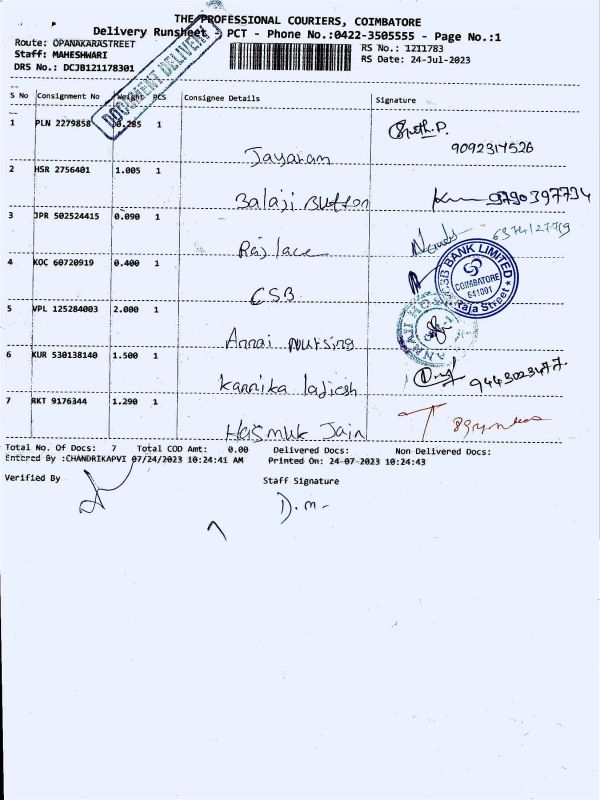 THE PROFESSIONAL COURIERS, COIMBATORE
Delivery Runsheet - PCT - Phone No.:0422-3505555 - Page No.:1
Route: OPANAKARASTREET
RS No.: 1211783
Staff: MAHESHWARI
RS Date: 24-Jul-2023
DRS No.: DCJB121178301
DOCUMENT DELIVERY
S No Consignment No Weight PCS Consignee Details Signature
1 PLN 2279858 0.285 1
9092317526
Jayaram
2 HSR 2756401 1.005 1
Balaji Button 9790397794
3 JPR 502524415 0.090 1
Raj lace
4 KOC 60720919 0.400 1
CSB
CSB BANK LIMITED
COIMBATORE
641001
Raja Street
5 VPL 125284003 2.000 1
Annai nursing
6 KUR 530138140 1.500 1
9443023477
Kannika
7 RKT 9176344 1.290 1
Hasmuk Jain
Total No. Of Docs: 7 Total COD Amt: 0.00 Delivered Docs: Non Delivered Docs:
Entered By :CHANDRIKAPVI 07/24/2023 10:24:41 AM Printed On: 24-07-2023 10:24:43
Verified By Staff Signature
D.m.